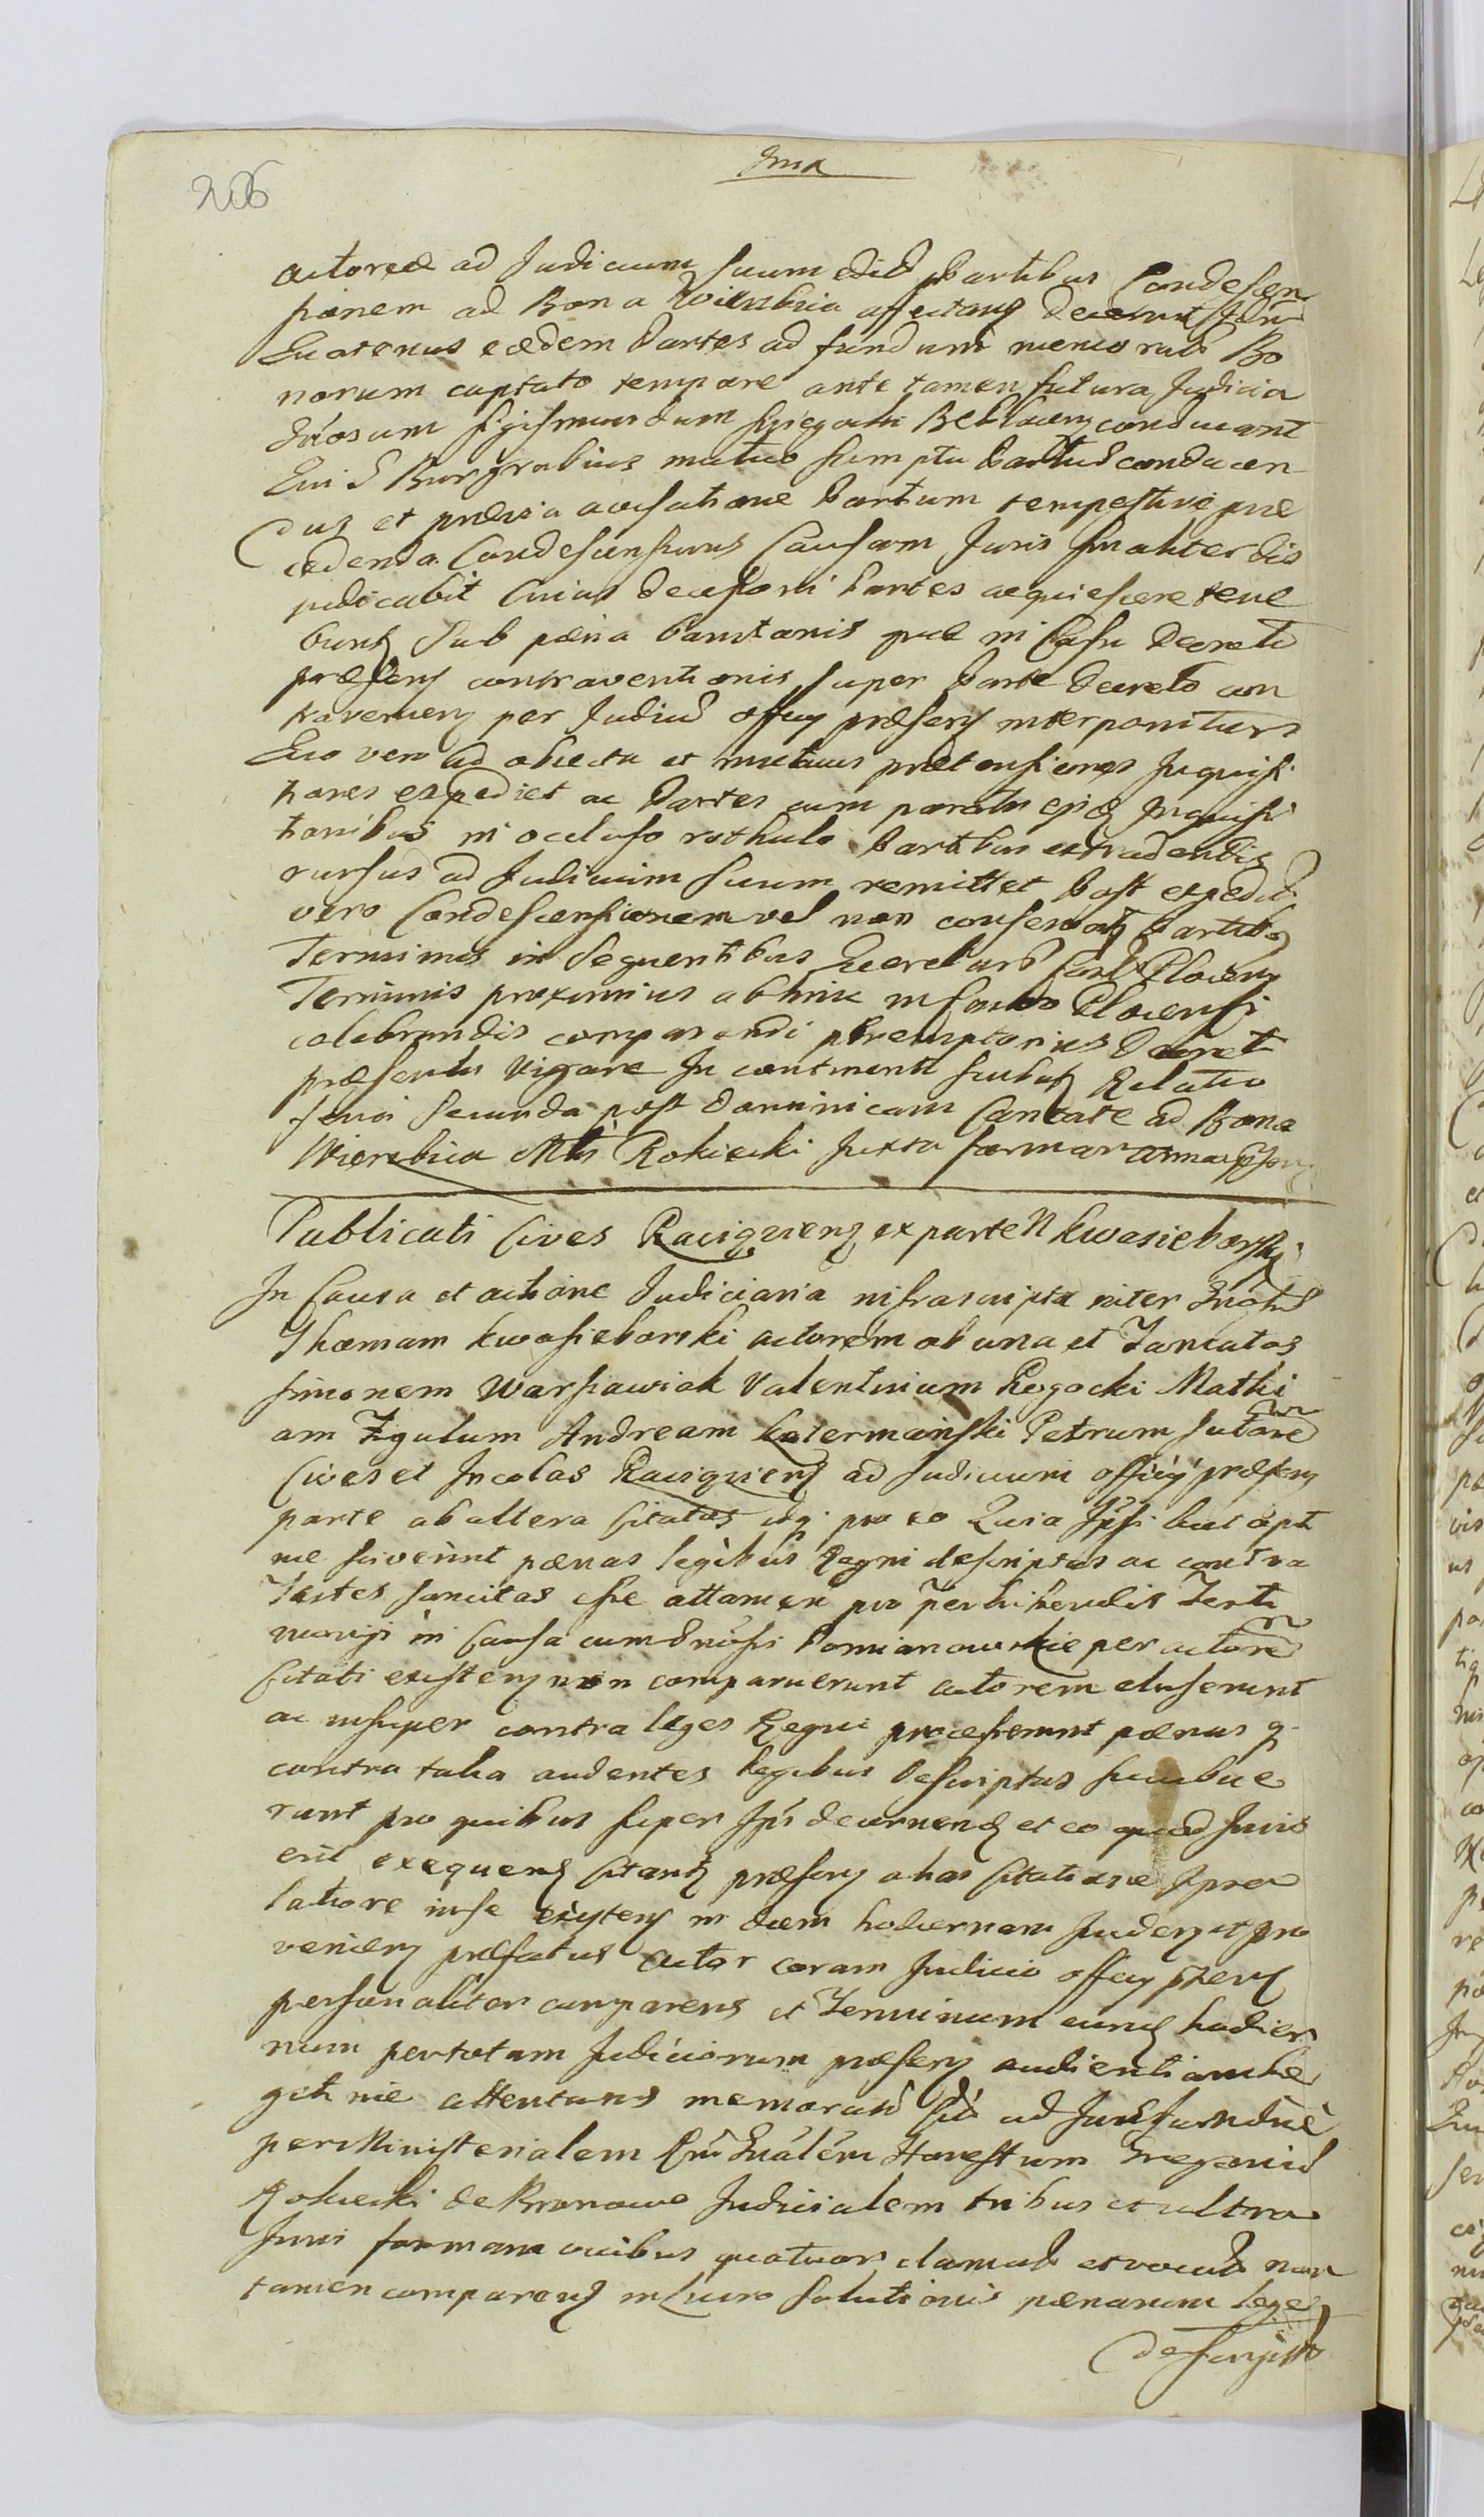 206
actoreae ad Judicium suum Partibus Condescen
sionem ad Bona Wierzbica affectans decernit
Quatenus eaedem Partes ad fundum memorat Bo
norum captato tempore ante tamen futura Judicia
Grosum Sigismundum conducant
Qui S Burgrabius mutuo sumptu conducen
dus et praevia avisatione Partium tempestive prae
cedenda Condescensurus Causam Juris finaliter dis
judicabit Cuius decisioni Partes acquiescere tene
buntz Sub paena quae in Casu Decreti
praesens contraventionis super Parte Decreto con
travenien per Judicium officij praesens interponitur
Quo vero ad obiecta et mutuas praetensiones Inquisi
tiones expediet ac Partes cum paratis ejsdem Inquisi
tionibus in occluso rothulo Partibus extradendis
rursus ad Judicium suum remittet Post expedit
vero Condescensionem vel non Partibus
Terminus in Sequentibus Plocens
Terminis proximius abhinc in Plocensi
celebrandis comparendi peremptorius Decreti
praesentis Vigore In continenti Relatio
feria Secunda post Dominicam Cantate ad Bona
Wierzbica Mtis Rokicki Juxta formam
Publicati Cives Raciąziens ex parte N Kwasieborski
In Causa et actione Judiciaria infrascripta inter
Thomam Kwasieborski actorem ab una et
Simonem Warsiawiak Valentinum Rogocki Mathi
am Figulum Andream Petrum Sutore
Cives et Incolas Raciąziens ad Judicium officij praesens
parte ab altera Citatos idq pro eo Quia Ipsi licet opti
me sciverint paenas legibus Regni descriptas ac contra
Testes sancitas esse attamen pro perhibendis Testi
monijs in Causa cum Gnosis Pomianowskie per actore
Citati existens non comparuerunt actorem eluserunt
ac insuper contra leges Regni processerunt paenas q
contra talia audentes legibus descriptas succubue
runt pro quibus super Ipsis decernend et eo quod Juris
erit exequens praesens alias Citatione Ipsa
latiore in se existens in diem hodiernam Judenz et pro
veniens praefatus actor coram Judicio officij praesens
personaliter comparens et Terminum eunq hodier
num per totam Judiciorum praesens audientiam le
gitime attentans memorat ad
per Ministerialem Gnalem Honestum Gregorium
Rokicki de Bronowo Judicialem tribus et ultra
Juris formam vicibus quatuor clamat et vocat non
tamen comparens in Lucro solutionis paenarum lege
descript